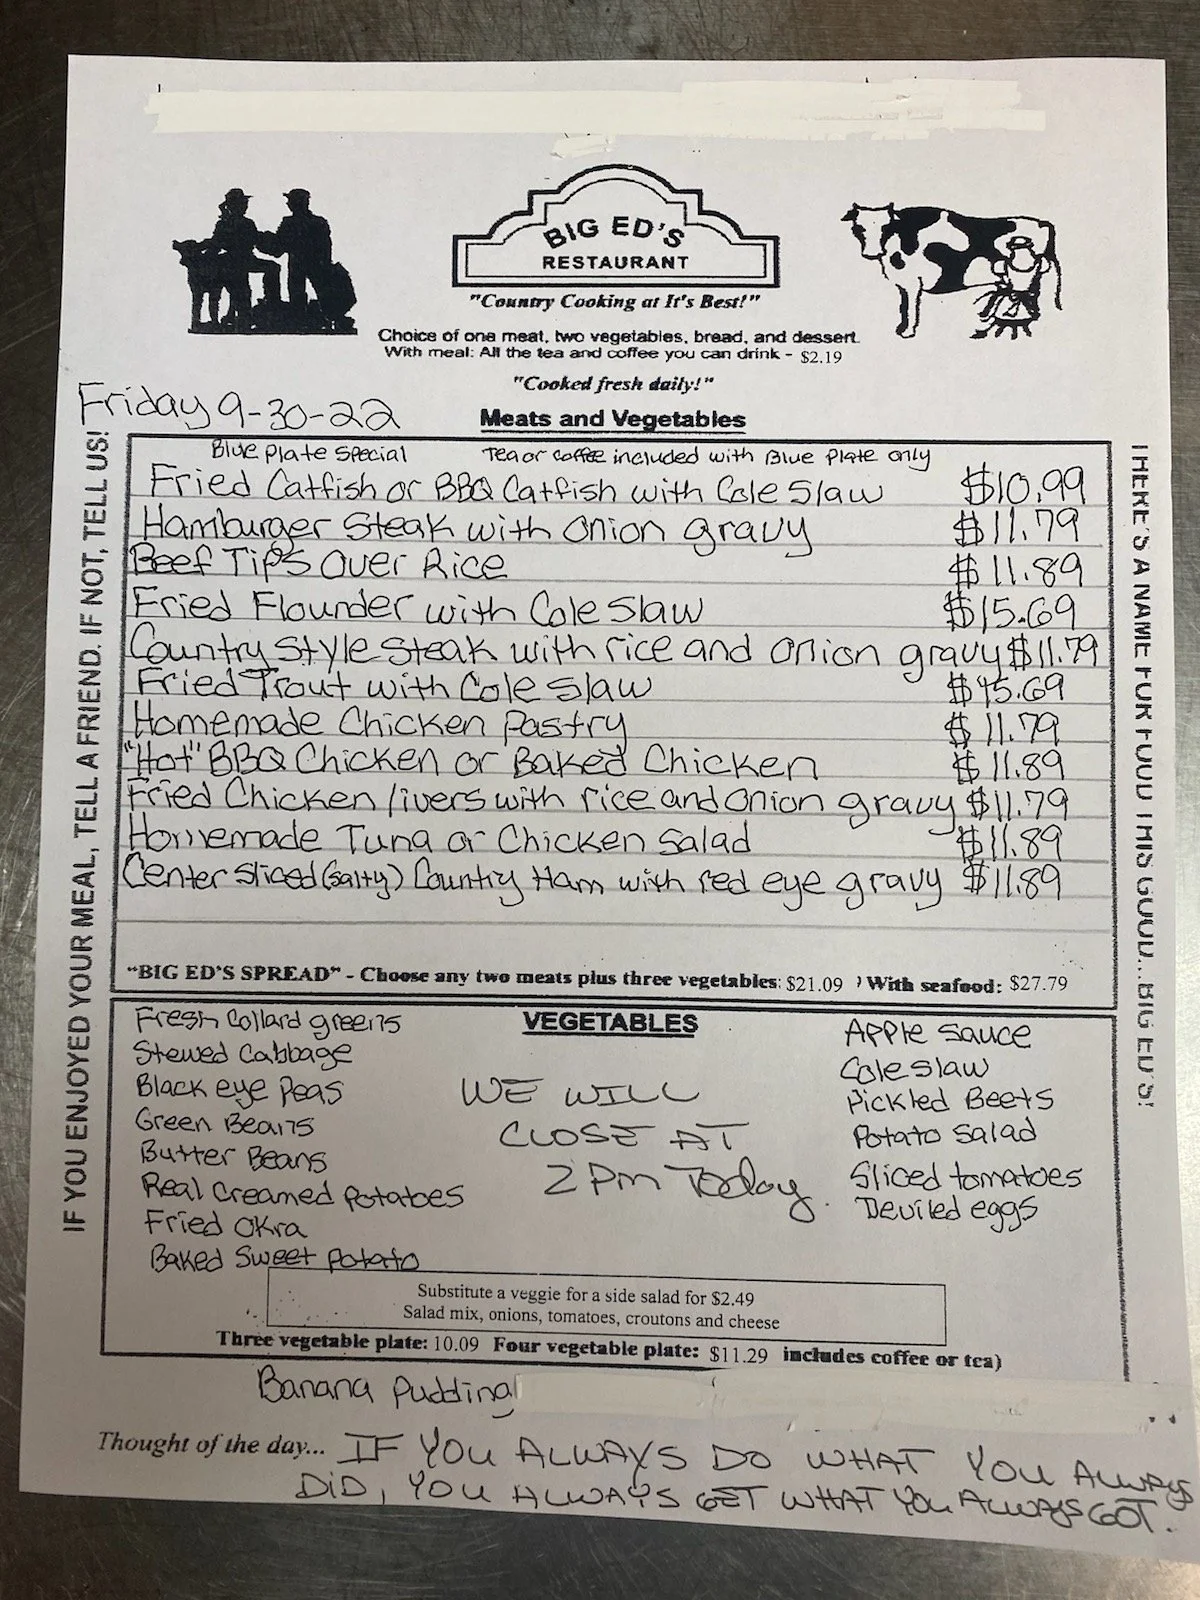 BIG ED'S
RESTAURANT
"Country Cooking at It's Best!"
Choice of one meat, two vegetables, bread, and dessert.
With meal: All the tea and coffee you can drink - $2.19
"Cooked fresh daily!"
Friday 9-30-22
Meats and Vegetables
IF YOU ENJOYED YOUR MEAL, TELL A FRIEND. IF NOT, TELL US!
THERE'S A NAME FOR FOOD THIS GOOD...BIG ED'S!
Blue Plate Special Tea or coffee included with Blue Plate only
Fried Catfish or BBQ Catfish with Cole Slaw $10.99
Hamburger Steak with Onion gravy $11.79
Beef Tips Over Rice $11.89
Fried Flounder with Cole Slaw $15.69
Country Style Steak with rice and Onion gravy $11.79
Fried Trout with Cole Slaw $15.69
Homemade Chicken Pastry $11.79
"Hot" BBQ Chicken or Baked Chicken $11.89
Fried Chicken livers with rice and Onion gravy $11.79
Homemade Tuna or Chicken Salad $11.89
Center Sliced (Salty) Country Ham with red eye gravy $11.89
"BIG ED'S SPREAD" - Choose any two meats plus three vegetables: $21.09 ) With seafood: $27.79
VEGETABLES
Fresh Collard greens
Stewed Cabbage
Black eye Peas
Green Beans
Butter Beans
Real Creamed Potatoes
Fried Okra
Baked Sweet Potato
WE WILL
CLOSE AT
2 Pm Today.
Apple Sauce
Cole Slaw
Pickled Beets
Potato Salad
Sliced tomatoes
Deviled eggs
Substitute a veggie for a side salad for $2.49
Salad mix, onions, tomatoes, croutons and cheese
Three vegetable plate: 10.09 Four vegetable plate: $11.29 includes coffee or tea)
Banana Pudding
Thought of the day... IF YOU ALWAYS DO WHAT YOU ALWAYS
DID, YOU ALWAYS GET WHAT YOU ALWAYS GOT.